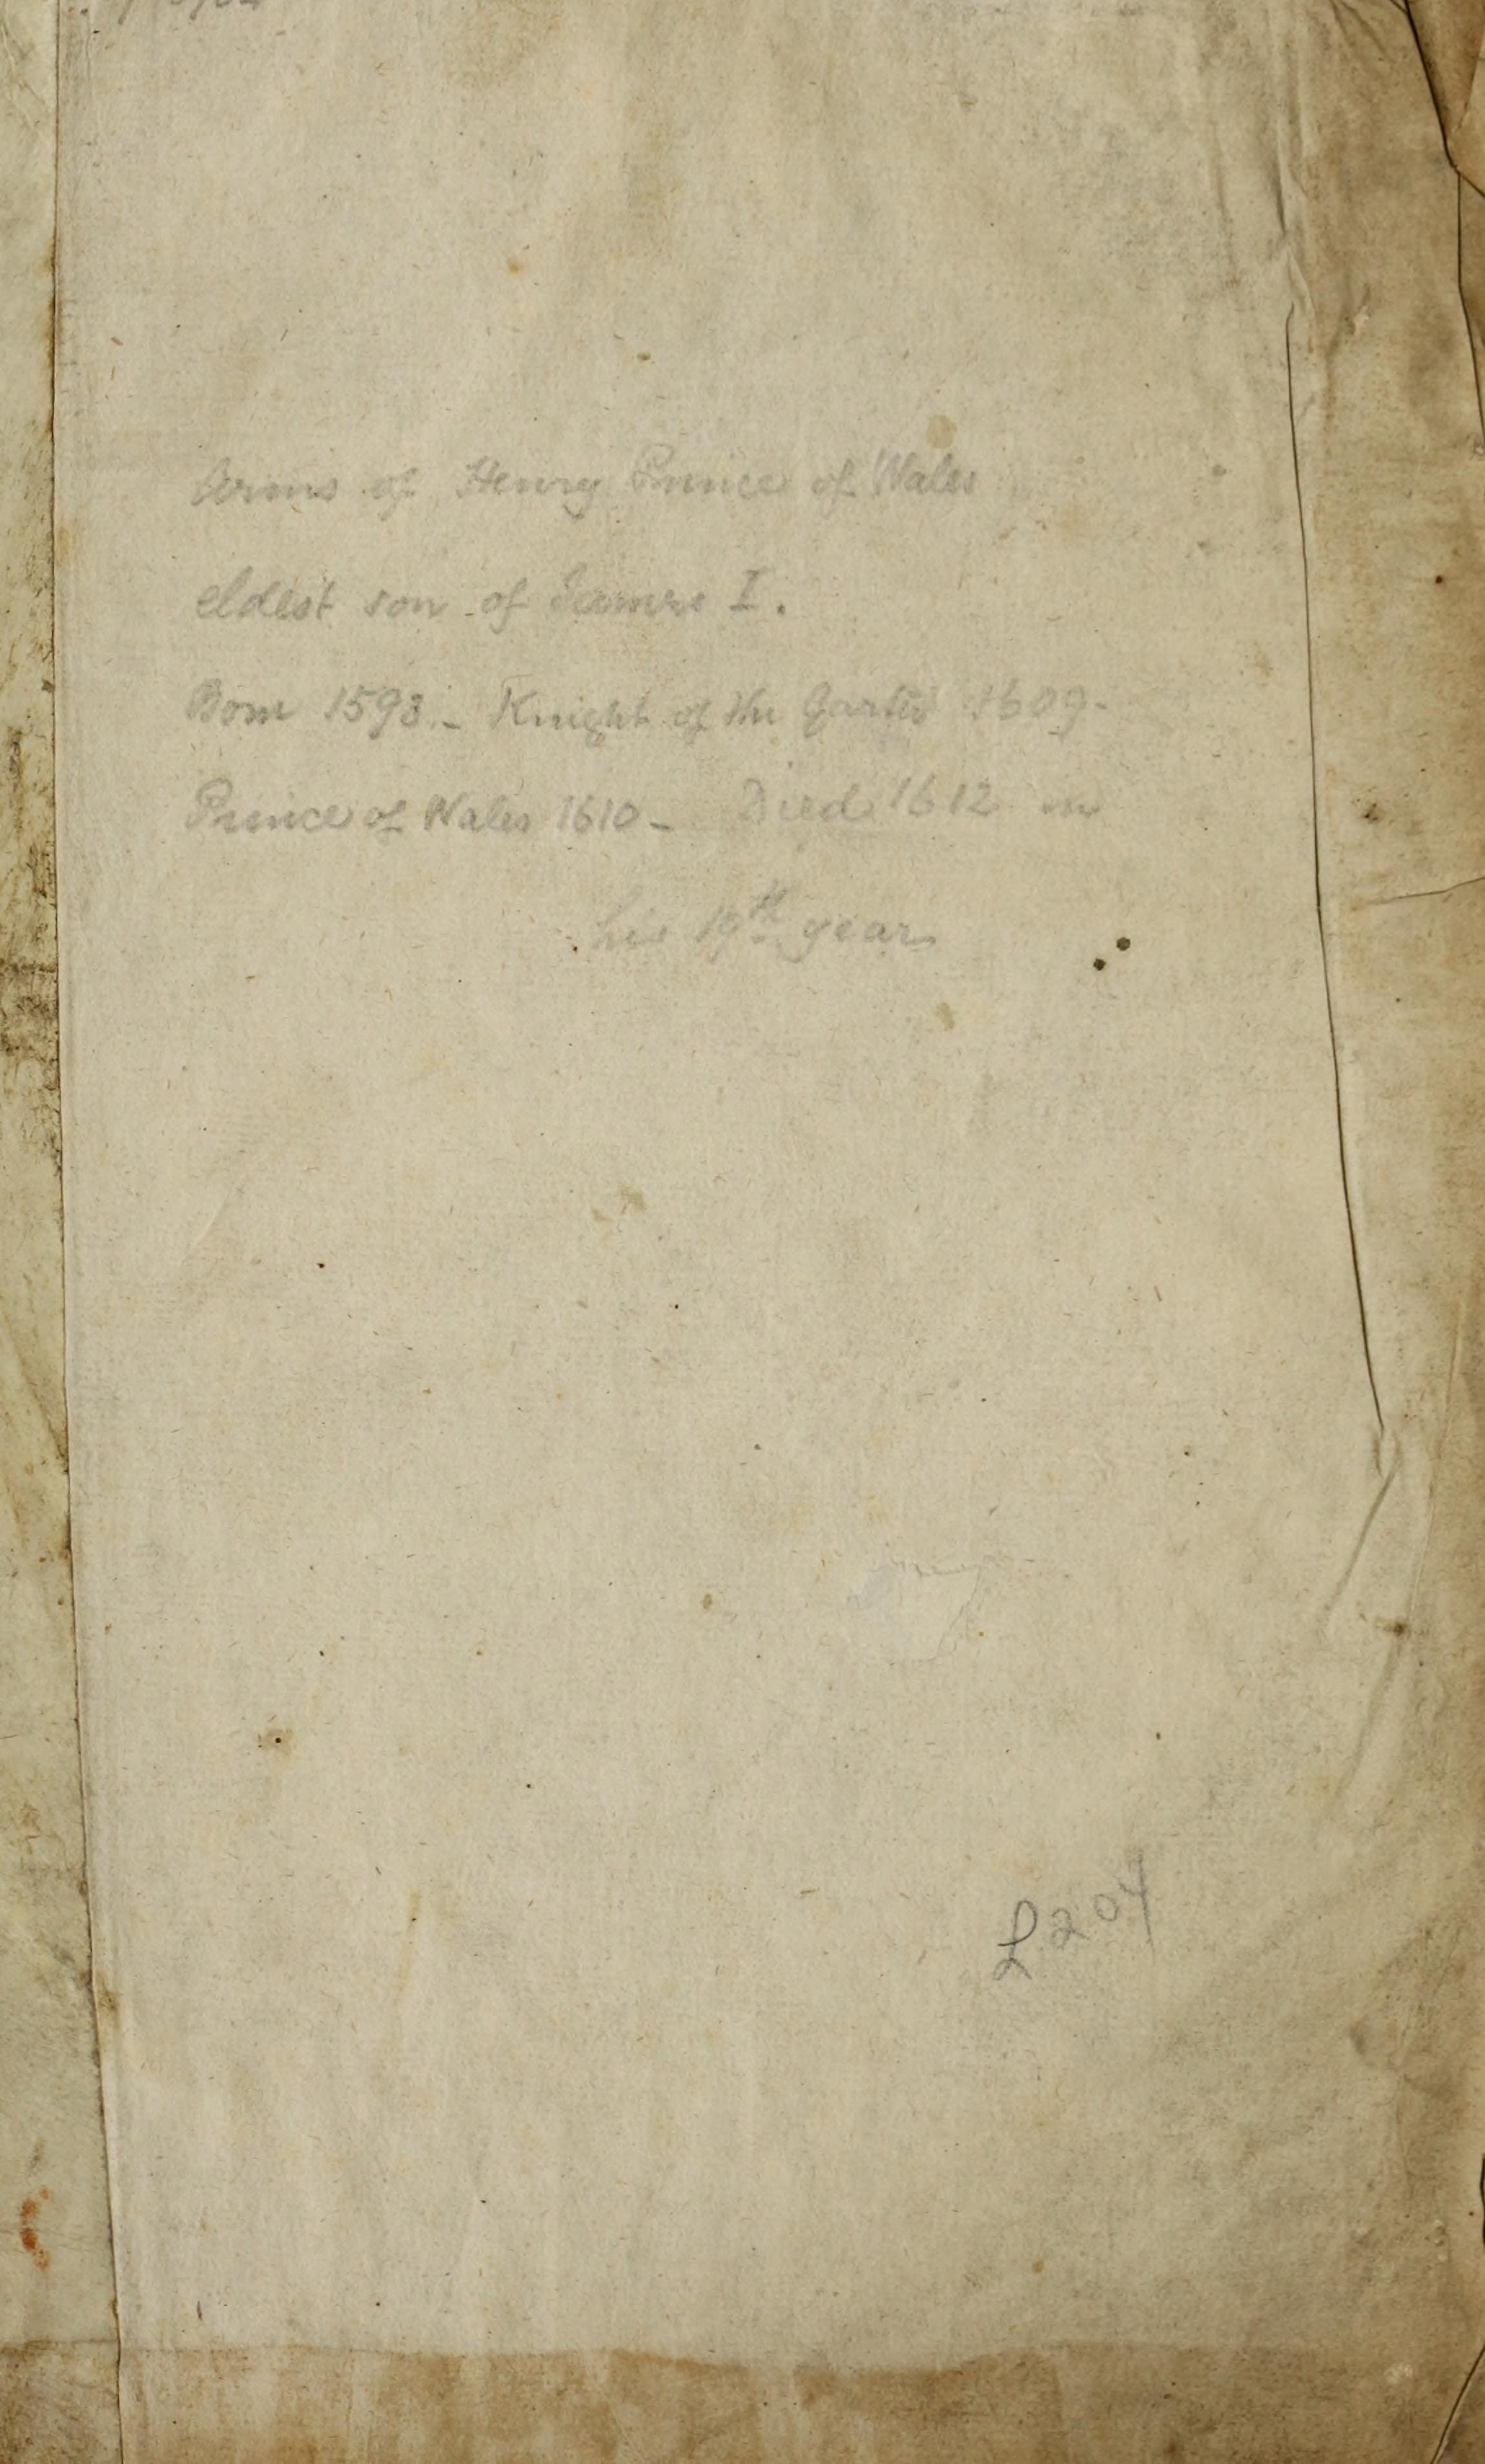 Arms of Henry Prince of Wales
eldest son of James I.
Born 1593 - Knight of the Garter 1609-
Prince of Wales 1610 - Died 1612 in
his 19th year
£204